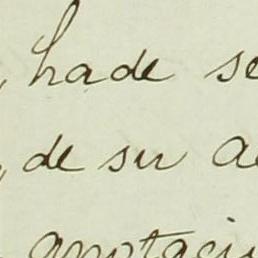 hade se
de su a
anotaci